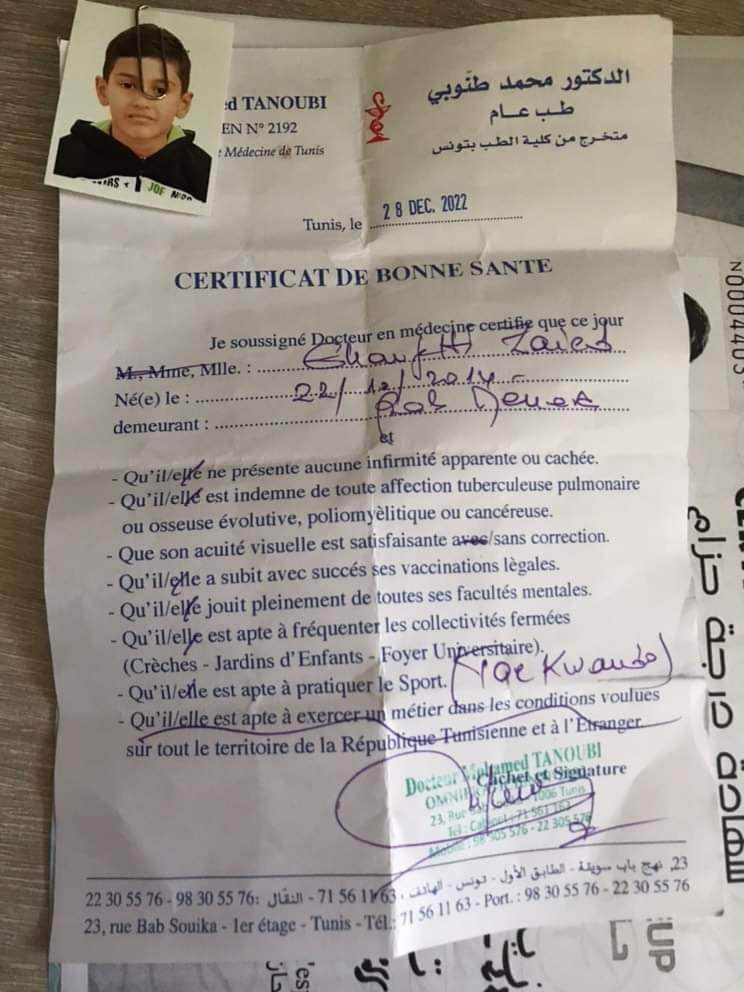 ed TANOUBI
EN N° 2192
Médecine de Tunis
الدكتور محمد طنوبي
طب عام
متخرج من كلية الطب بتونس
Tunis, le 28 DEC. 2022
CERTIFICAT DE BONNE SANTE
Je soussigné Docteur en médecine certifie que ce jour
M., Mme, Mlle. :
Né(e) le : 22/12/2014
demeurant :
et
- Qu'il/elle ne présente aucune infirmité apparente ou cachée.
- Qu'il/elle est indemne de toute affection tuberculeuse pulmonaire
ou osseuse évolutive, poliomyèlitique ou cancéreuse.
- Que son acuité visuelle est satisfaisante avec/sans correction.
- Qu'il/elle a subit avec succés ses vaccinations lègales.
- Qu'il/elle jouit pleinement de toutes ses facultés mentales.
- Qu'il/elle est apte à fréquenter les collectivités fermées
(Crèches - Jardins d'Enfants - Foyer Universitaire).
- Qu'il/elle est apte à pratiquer le Sport. (Tae Kwando)
- Qu'il/elle est apte à exercer un métier dans les conditions voulues
sur tout le territoire de la République Tunisienne et à l'Etranger
Docteur Mohamed TANOUBI
Cachet et Signature
23, Rue 1006 Tunis
Tél : Cabinet : 71 561 163
Mobile : 98 305 576 - 22 305 576
23, نهج باب سويقة - الطابق الأول - تونس - الهاتف : 71 56 11 63 - النقال : 98 30 55 76 - 22 30 55 76
23, rue Bab Souika - 1er étage - Tunis - Tél.: 71 56 11 63 - Port. : 98 30 55 76 - 22 30 55 76
N0004403
شهادة درجة حزام
UP